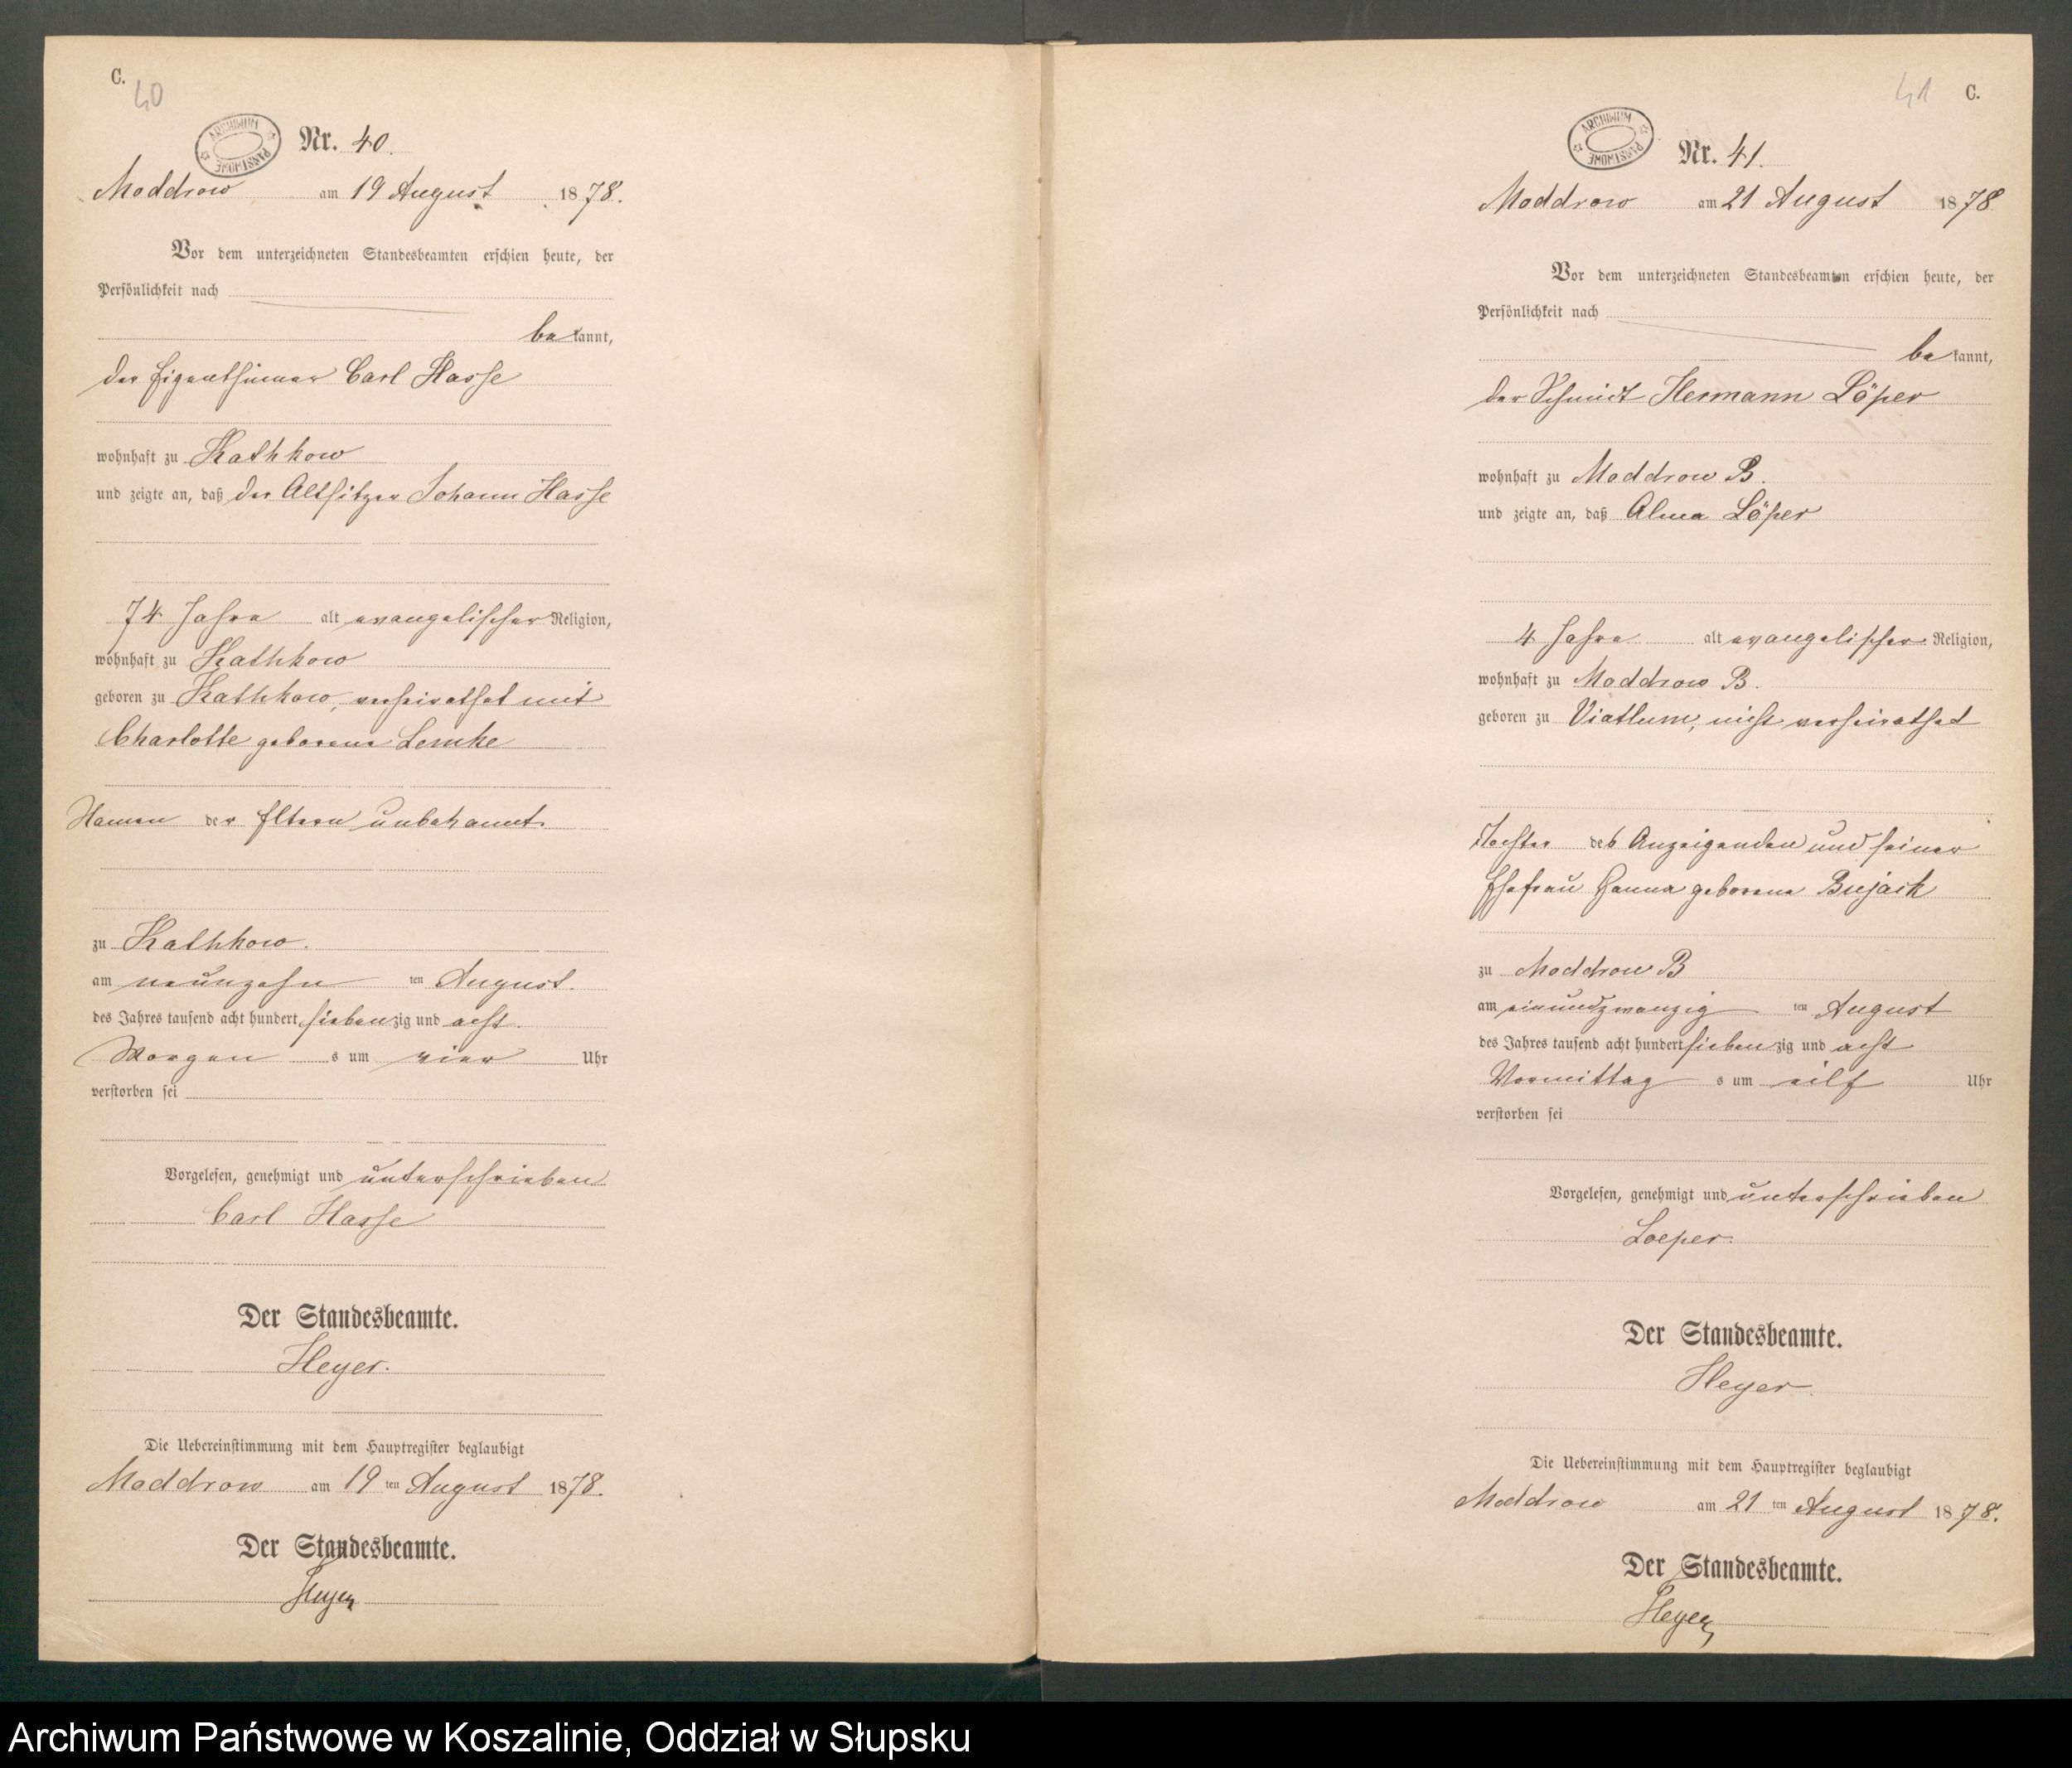 C.
40
ARCHIWUM PAŃSTWOWE
Nr. 40.
Moddrow am 19 August 1878.
Vor dem unterzeichneten Standesbeamten erschien heute, der
Persönlichkeit nach
bekannt,
der Eigenthümer Carl Hasse
wohnhaft zu Kathkow
und zeigte an, daß der Altsitzer Johann Hasse
74 Jahre alt evangelischer Religion,
wohnhaft zu Kathkow
geboren zu Kathkow, verheirathet mit
Charlotte geborene Lemke
Namen der Eltern unbekannt.
zu Kathkow.
am neunzehn ten August.
des Jahres tausend acht hundert siebenzig und acht
Morgens um vier Uhr
verstorben sei
Vorgelesen, genehmigt und unterschrieben
Carl Hasse
Der Standesbeamte.
Heyer.
Die Uebereinstimmung mit dem Hauptregister beglaubigt
Moddrow am 19 ten August 1878.
Der Standesbeamte.
Heyer
41
C.
ARCHIWUM PAŃSTWOWE
Nr. 41.
Moddrow am 21 August 1878
Vor dem unterzeichneten Standesbeamten erschien heute, der
Persönlichkeit nach
bekannt,
der Schmidt Hermann Löper
wohnhaft zu Moddrow B.
und zeigte an, daß Alma Löper
4 Jahre alt evangelischer Religion,
wohnhaft zu Moddrow B.
geboren zu Viatlum, nicht verheirathet
Tochter des Anzeigenden und seiner
Ehefrau Hanna geborene Bujack
zu Moddrow B
am einundzwanzig ten August
des Jahres tausend acht hundert siebenzig und acht
Vormittags um eilf Uhr
verstorben sei
Vorgelesen, genehmigt und unterschrieben
Loeper.
Der Standesbeamte.
Heyer.
Die Uebereinstimmung mit dem Hauptregister beglaubigt
Moddrow am 21 ten August 1878.
Der Standesbeamte.
Heyer
Archiwum Państwowe w Koszalinie, Oddział w Słupsku